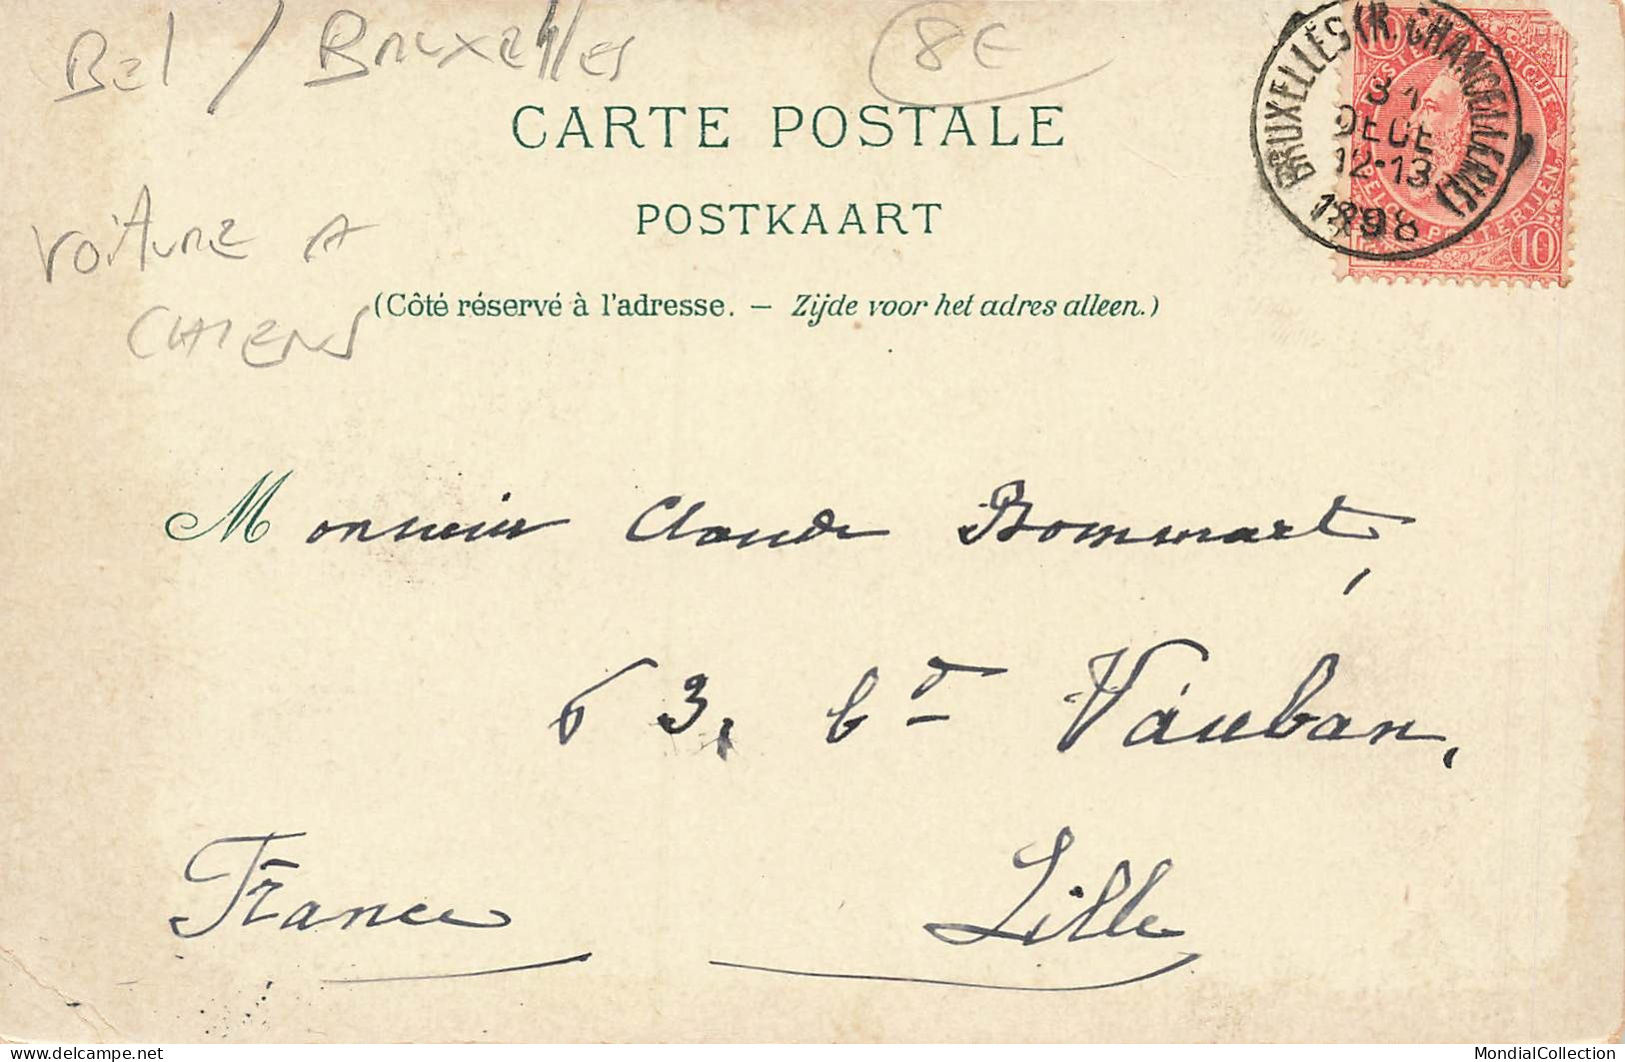 Bel / Bruxelles
8€
CARTE POSTALE
POSTKAART
VOITURE A
CHIENS
(Côté réservé à l'adresse. — Zijde voor het adres alleen.)
BRUXELLES (R. CHANCELLERIE)
31
DECE
12-13
1898
10
10
Monsieur Claude Bommart,
63, bd Vauban,
Lille
France
delcampe.net
MondialCollection